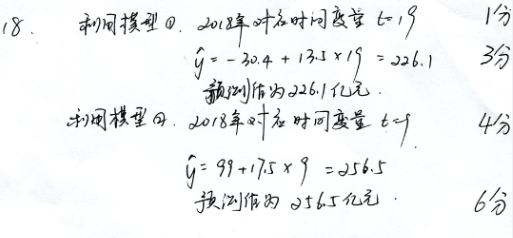 18. 利用模型①. 2018年对应时间变量 t=19 1分
ŷ = -30.4 + 13.5 × 19 = 226.1 3分
预测值为226.1亿元.
利用模型②. 2018年对应时间变量 t=9 4分
ŷ = 99 + 17.5 × 9 = 256.5
预测值为 256.5亿元. 6分